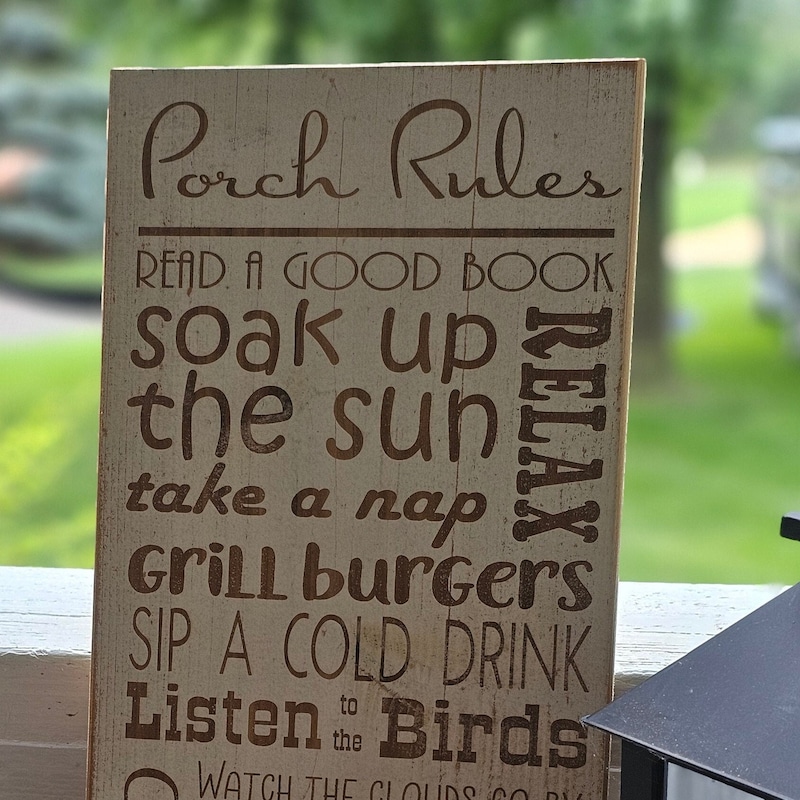 Porch Rules
READ A GOOD BOOK
soak up
the sun
RELAX
take a nap
Grill burgers
SIP A COLD DRINK
Listen to the Birds
WATCH THE CLOUDS GO BY